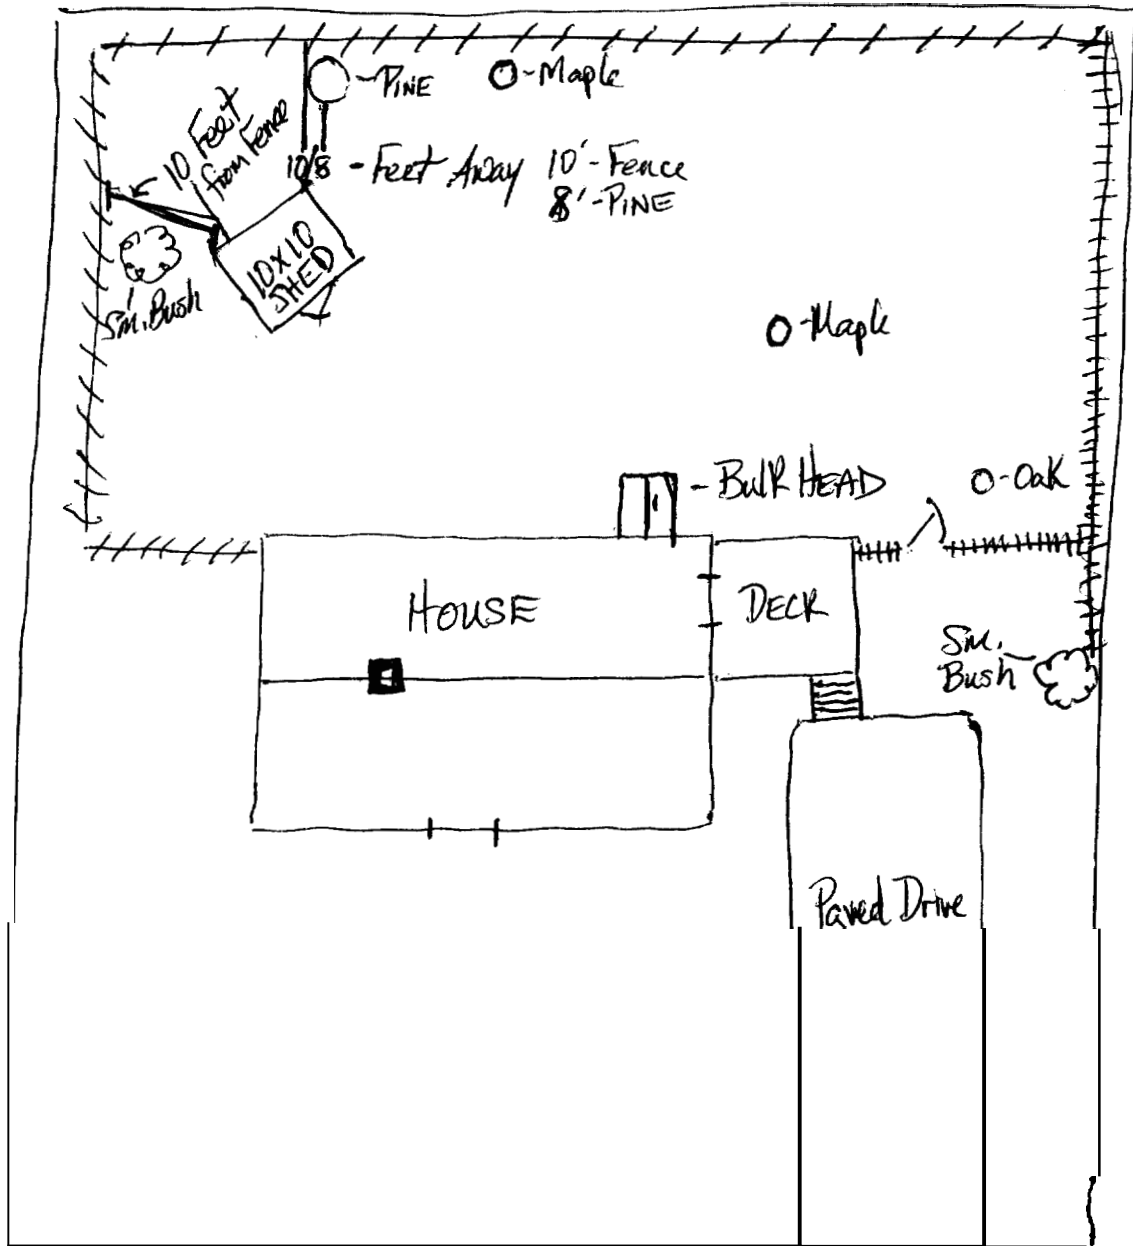 PINE
Maple
10 Feet
from Fence
10/8 - Feet Away 10' - Fence
8' - PINE
10x10
SHED
Sm. Bush
Maple
Bulk HEAD
Oak
HOUSE
DECK
Sm.
Bush
Paved Drive